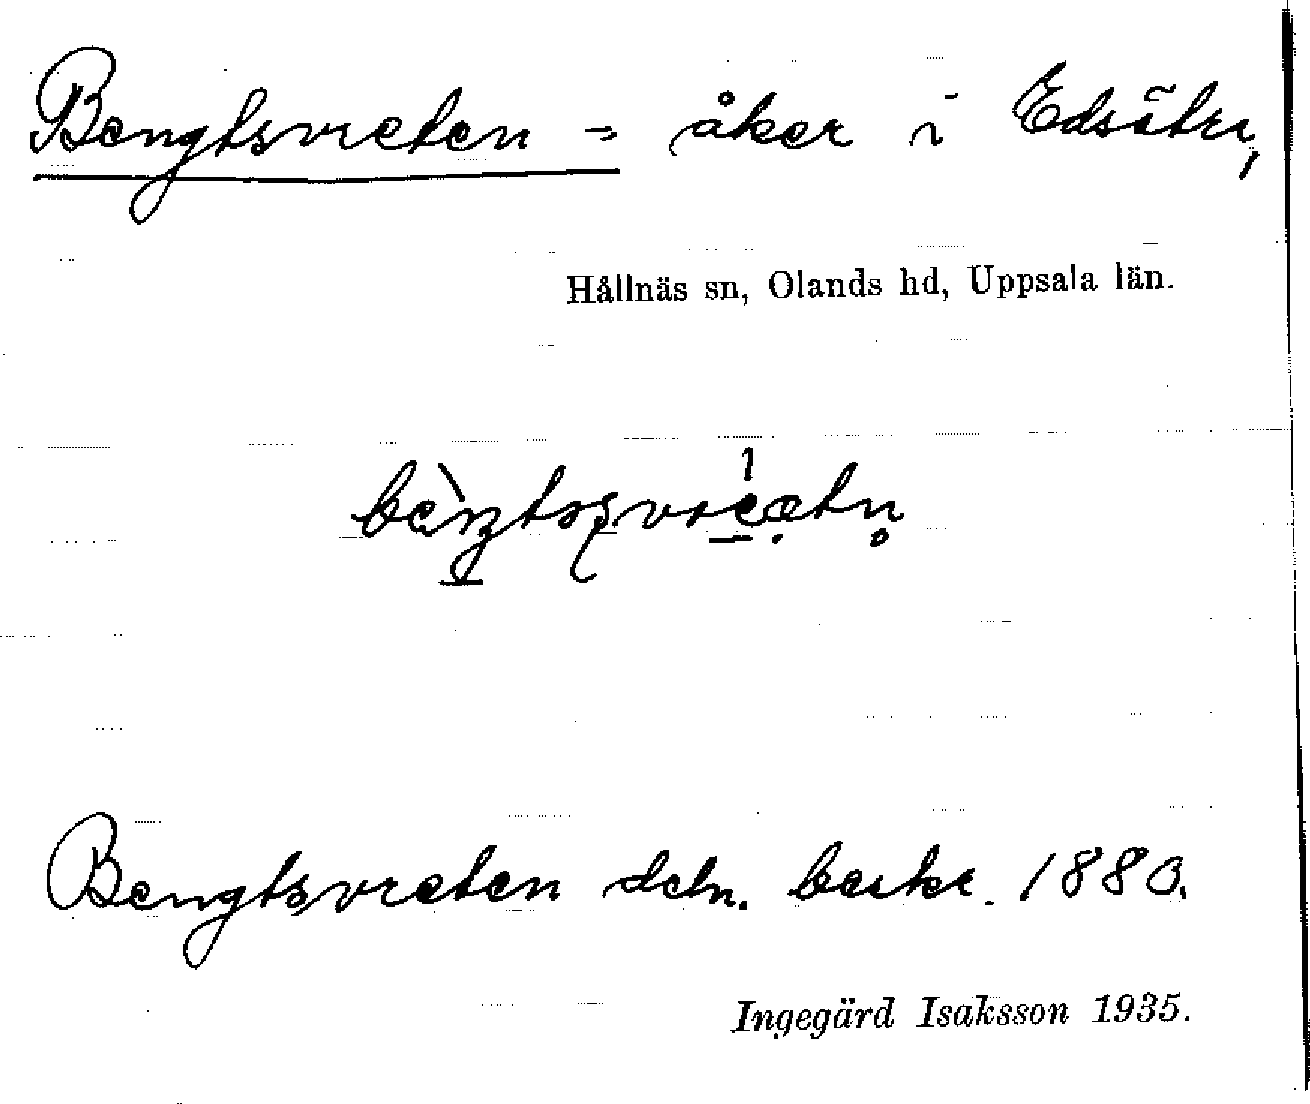 Bengtsvreten = åker i Edsätra,
Hållnäs sn, Olands hd, Uppsala län.
Bengtsvreten deln. beskr. 1880.
Ingegärd Isaksson 1935.